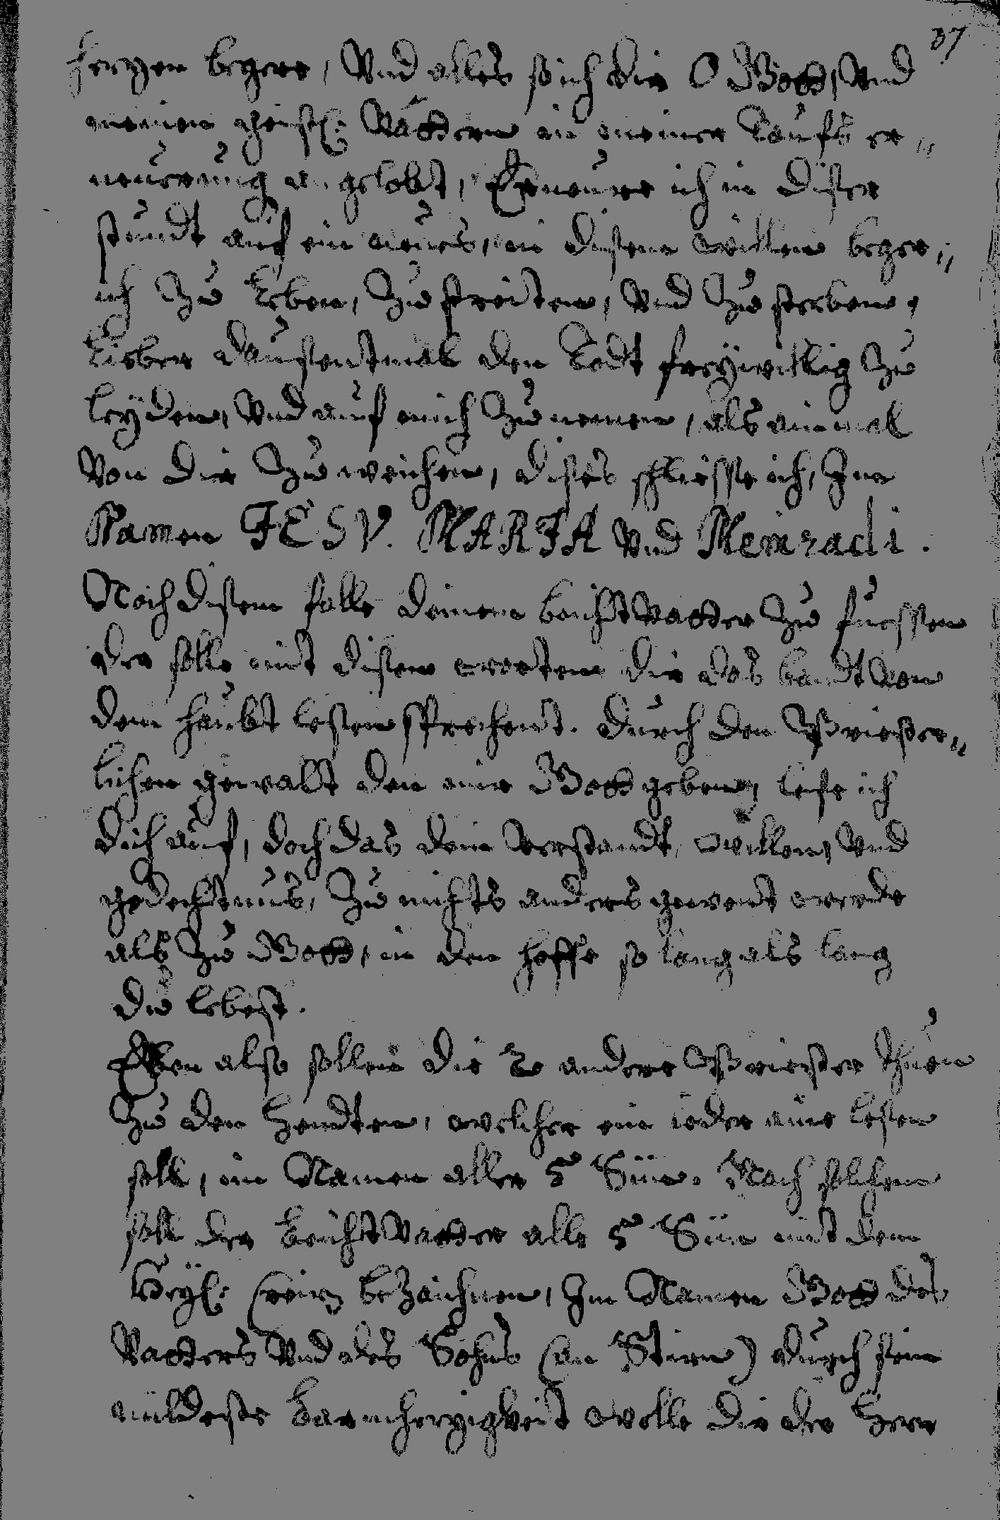 37
hertzen begere, Vnd alles so ich dir O Gott, Vnd
meinen geistl: Vättern in meiner Taufs er„
neuerung angelobt, Erneure ich in diser
stundt auf ein neues, in disem willen beger„
ich Zu leben, Zu streiten, Vnd Zu sterben,
lieber dausentmal den Todt freywillig Zu
leyden, Vnd auf mich Zu nemen, als ainmal
Von dir Zu weichen, dises schliesse ich, Im
Namen JESV. MARIA Vnd Meinradi.
Nach disem falle deinem beichtVatter Zu fuessen
der solle mit disen worten dir das bandt Von
dem haubt lesen sprechent. durch den Priester„
lichen gewalt den mir Gott geben, lese ich
dich auf, doch das dein Verstandt, willen, Vnd
gedechtnus, Zu nichts anders gewent werde
als Zu Gott, in den hoffe so lang als lang
du lebest.
Eben also sollen die 2 andere Priester thuen
Zu den hendten, welcher ein ieder eine lesen
soll, im Namen aller 5 Sün. Nach solchem
soll der beichtVatter alle 5 Sün mit dem
Heyl: Creitz beZaichnen, Im Namen Gott des
Vatters Vnd des Sohns (an Stirn) durch sein
mildeste barmhertzigkeit wolle dir der Herr